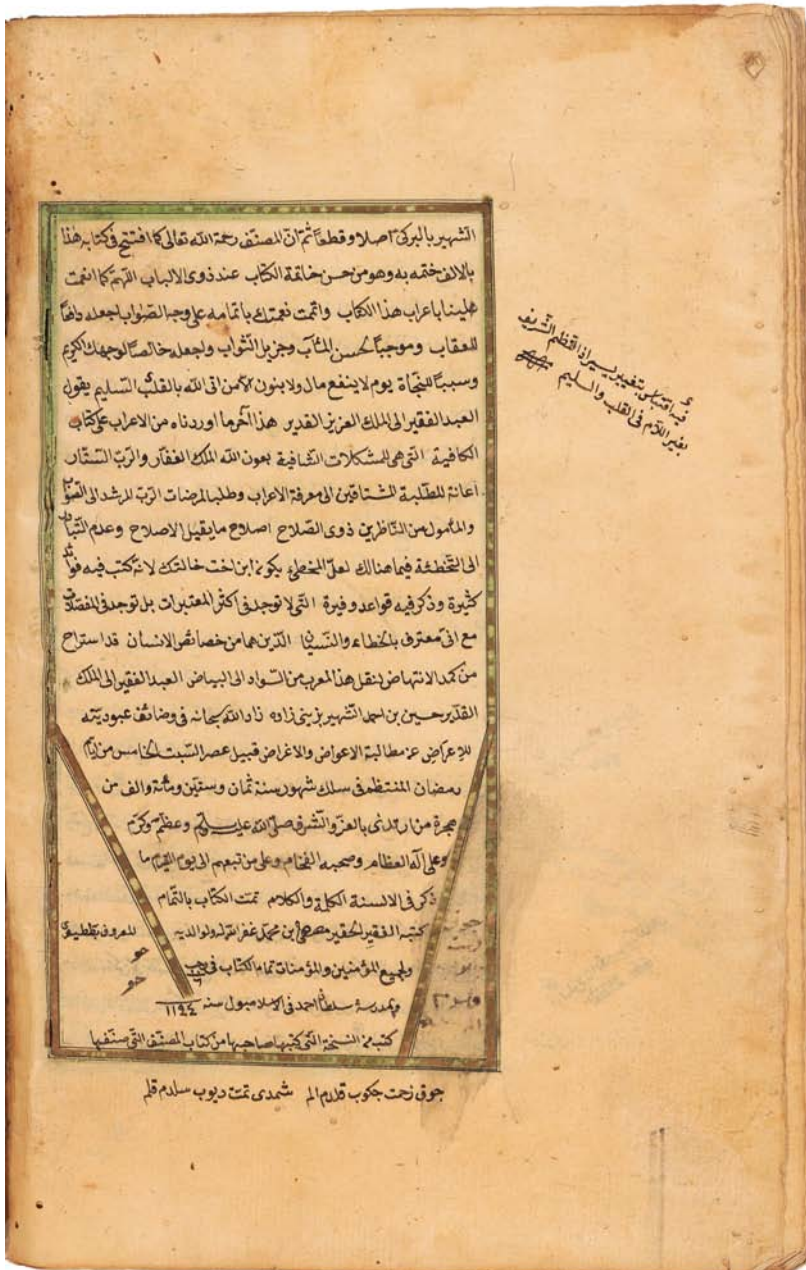 الشهير بالبركى اصلا وقطعاً ثم ان المصنف رحمة الله تعالى كما افتتح فى كتابه هذا
بالالف ختمه به وهو من حسن خاتمة الكتاب عند ذوى الالباب اللهم كما انعمت
علينا باعراب هذا الكتاب واتممت نعمتك باتمامه على وجه الصواب اجعله دافعاً
للعقاب وموجباً لحسن المئآب وجزيل الثواب واجعله خالصاً لوجهك الكريم
وسبباً للنجاة يوم لا ينفع مال ولا بنون الا من اتى الله بالقلب السليم يقول
العبد الفقير الى الملك العزيز القدير هذا آخر ما اوردناه من الاعراب على كتاب
الكافية التى هى للمشكلات الشافية بعون الله الملك الغفار والرب الستار
اعانة للطلبة المشتاقين الى معرفة الاعراب وطلبا لمرضات الرب المرشد الى الصواب
والمأمول من الناظرين ذوى الصلاح اصلاح ما يقبل الاصلاح وعدم التبادر
الى التخطئة فيما هنالك لعل المخطئ يكون ابن اخت خالتك لانه كتب فيه فوائد
كثيرة وذكر فيه قواعد وفيرة التى لا توجد فى اكثر المعتبرات بل توجد فى المفصلات
مع انى معترف بالخطاء والنسيان الذين هما من خصائص الانسان قد استراح
من كمد الانتهاض لنقل هذا المعرب من السواد الى البياض العبد الفقير الى الملك
القدير حسين بن احمد الشهير بزينى زاده زاد الله سبحانه فى وضائف عبوديته
للاعراض عن مطالبة الاعواض والاغراض قبيل عصر السبت الخامس من ايام
رمضان المنتظم فى سلك شهور سنة ثمان وستين ومائة والف من
هجرة من ارتدى بالعز والشرف صلى الله عليه وسلم وعظم وكرم
وعلى آله العظام وصحبه الفخام وعلى من تبعهم الى يوم القيام ما
ذكر فى الالسنة الكلمة والكلام تمت الكتاب بالتمام
كتبه الفقير الحقير بن محمد غفر الله له ولوالديه المعروف
ولجميع المؤمنين والمؤمنات تمام الكتاب فى رجب
بمدرسة سلطان احمد فى الاسلامبول سنه ١١٩٤
كتب من النسخة التى كتبها صاحبها من كتاب المصنف التى صنفها
جوق زحمت جكوب قلدم الم شمدى تمت ديوب سلدم قلم
فيه اقتباس بتغيير يسير اذ النظم الشريف
بغير اللام فى القلب والسليم